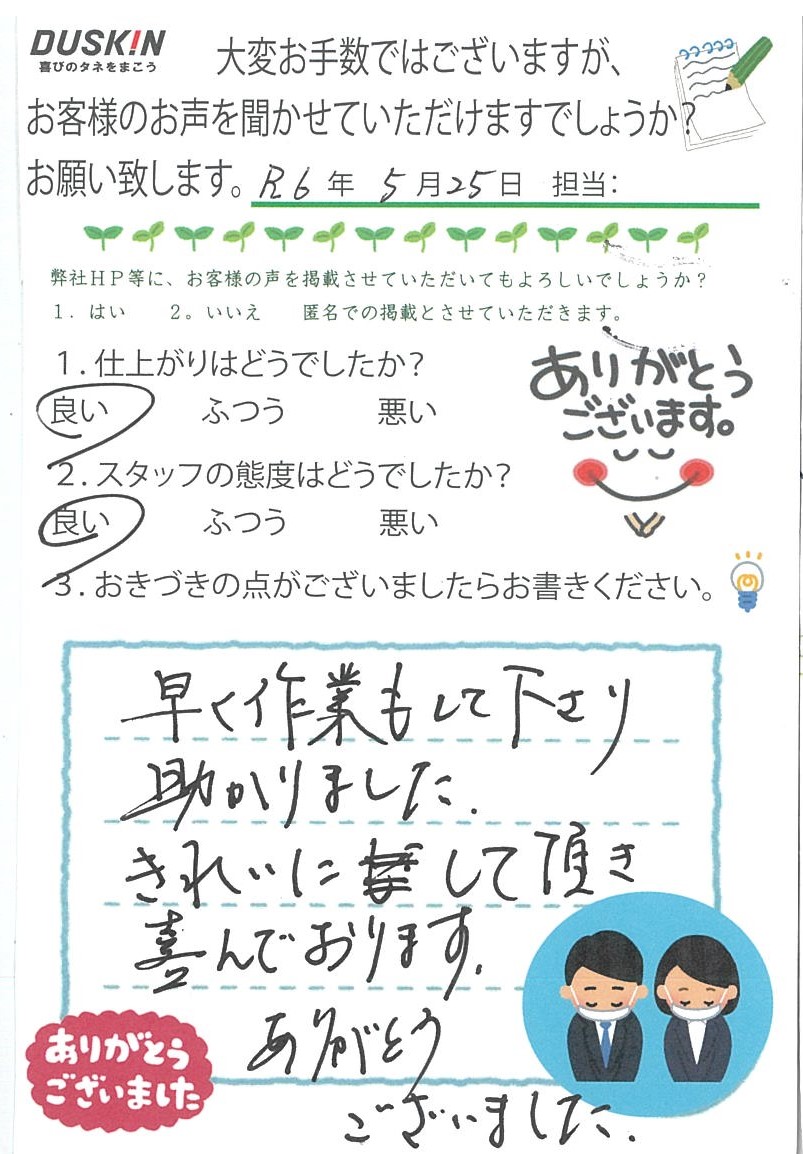 DUSKIN
喜びのタネをまこう
大変お手数ではございますが、
お客様のお声を聞かせていただけますでしょうか？
お願い致します。R6年 5月25日 担当：
弊社HP等に、お客様の声を掲載させていただいてもよろしいでしょうか？
1．はい 2。いいえ 匿名での掲載とさせていただきます。
1．仕上がりはどうでしたか？
良い ふつう 悪い
ありがとう
ございます。
2．スタッフの態度はどうでしたか？
良い ふつう 悪い
3．おきづきの点がございましたらお書きください。
早く作業もして下さり
助かりました.
きれいにして頂き
喜んでおります.
ありがとう
ございました.
ありがとう
ございました